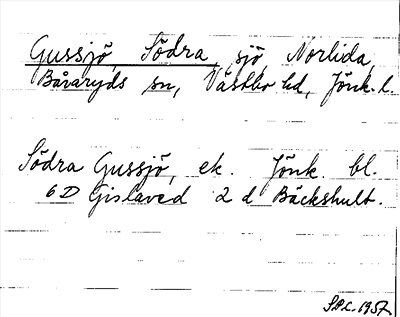 Gussjö, Södra, sjö, Norlida,
Båraryds sn, Västbo hd, Jönk. l.
Södra Gussjö, ek. Jönk. bl.
6 D Gislaved 2 d Bäckshult.
1957.